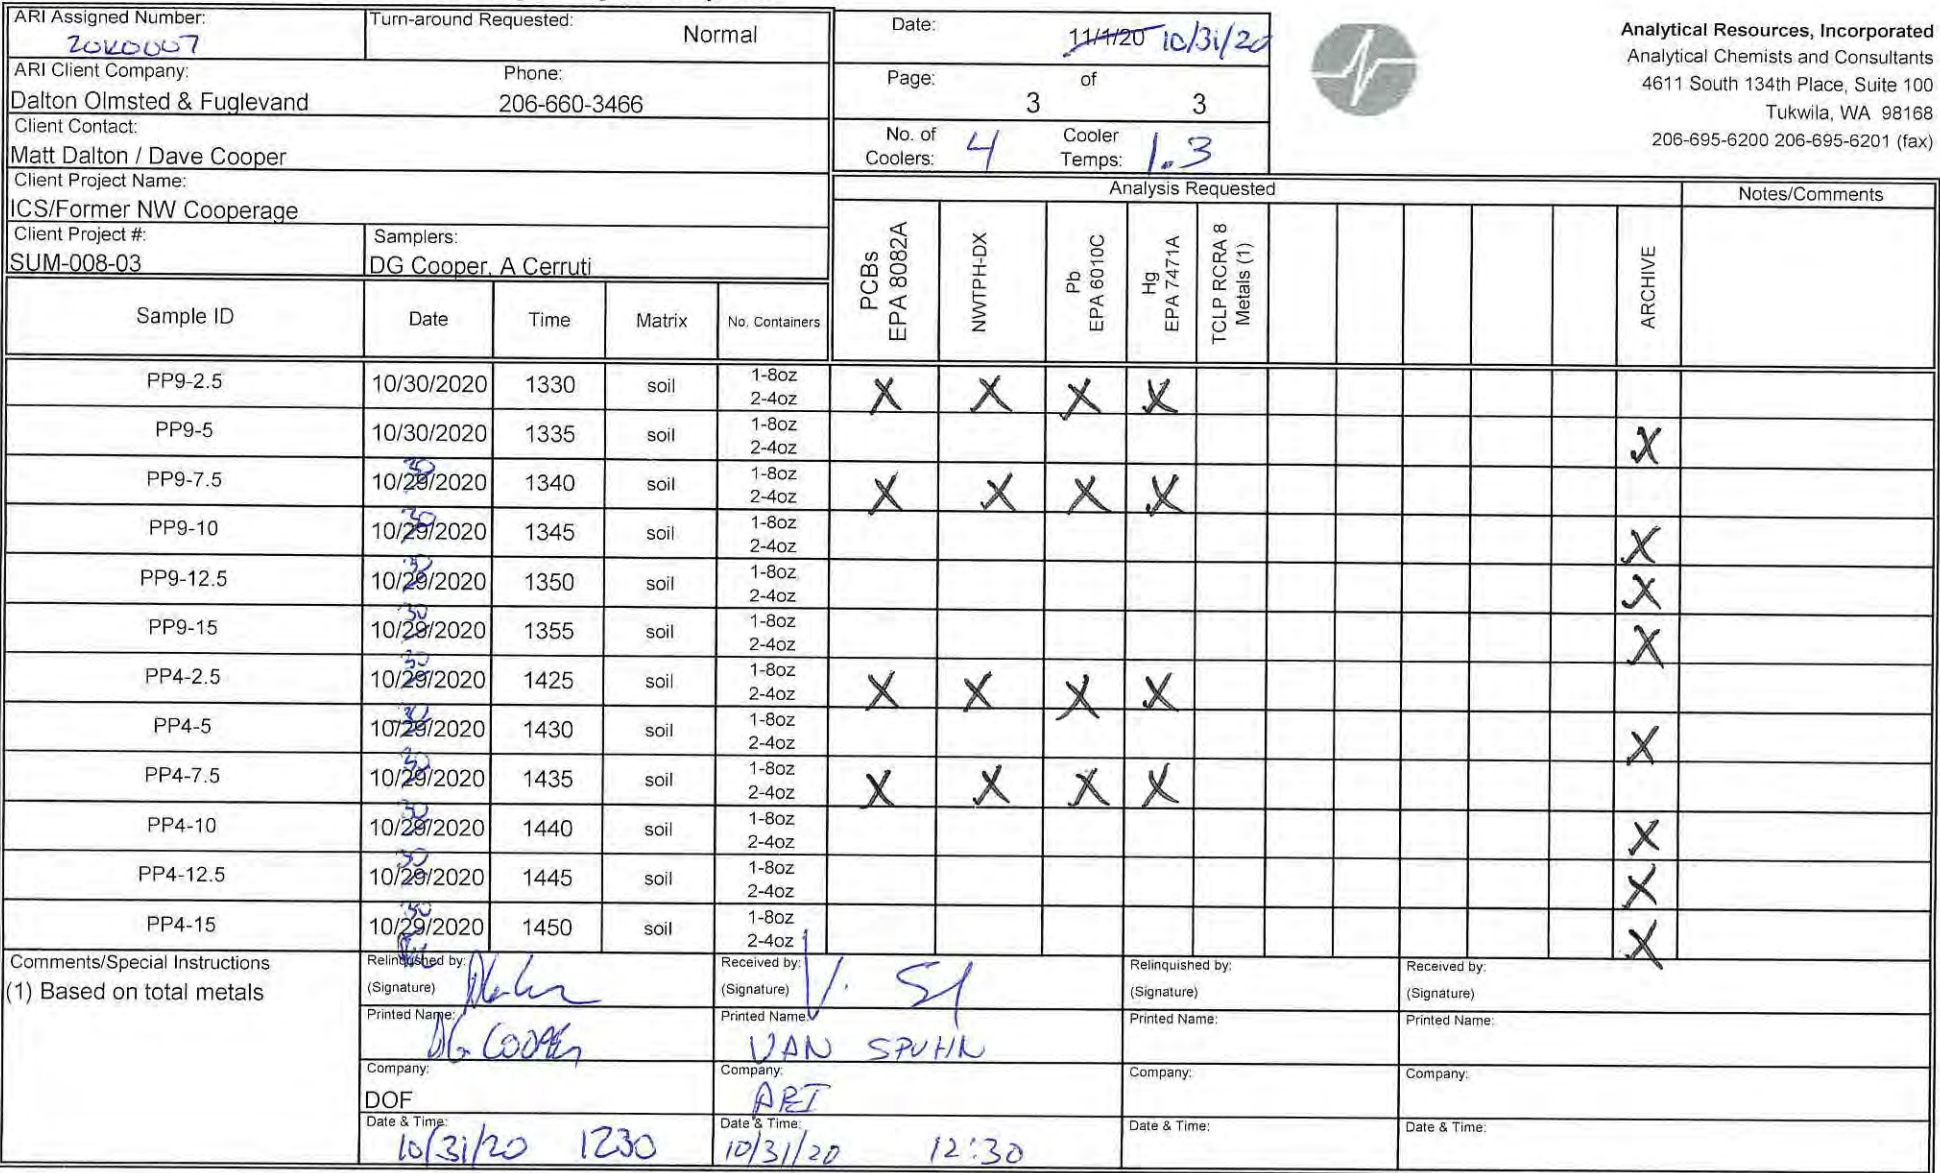 ARI Assigned Number: Turn-around Requested: Normal
20K0007
ARI Client Company: Phone:
Dalton Olmsted & Fuglevand 206-660-3466
Client Contact:
Matt Dalton / Dave Cooper
Client Project Name:
ICS/Former NW Cooperage
Client Project #: Samplers:
SUM-008-03 DG Cooper, A Cerruti
Date: 11/1/20 10/31/20
Page: 3 of 3
No. of Coolers: 4 Cooler Temps: 1.3
Analytical Resources, Incorporated
Analytical Chemists and Consultants
4611 South 134th Place, Suite 100
Tukwila, WA 98168
206-695-6200 206-695-6201 (fax)
Analysis Requested Notes/Comments
Sample ID Date Time Matrix No. Containers
PCBs
EPA 8082A
NWTPH-DX
Pb
EPA 6010C
Hg
EPA 7471A
TCLP RCRA 8
Metals (1)
ARCHIVE
PP9-2.5 10/30/2020 1330 soil 1-8oz 2-4oz X X X X
PP9-5 10/30/2020 1335 soil 1-8oz 2-4oz X
PP9-7.5 10/29/2020 30 1340 soil 1-8oz 2-4oz X X X X
PP9-10 10/29/2020 30 1345 soil 1-8oz 2-4oz X
PP9-12.5 10/29/2020 30 1350 soil 1-8oz 2-4oz X
PP9-15 10/29/2020 30 1355 soil 1-8oz 2-4oz X
PP4-2.5 10/29/2020 30 1425 soil 1-8oz 2-4oz X X X X
PP4-5 10/29/2020 30 1430 soil 1-8oz 2-4oz X
PP4-7.5 10/29/2020 30 1435 soil 1-8oz 2-4oz X X X X
PP4-10 10/29/2020 30 1440 soil 1-8oz 2-4oz X
PP4-12.5 10/29/2020 30 1445 soil 1-8oz 2-4oz X
PP4-15 10/29/2020 30 1450 soil 1-8oz 2-4oz X
Comments/Special Instructions
(1) Based on total metals
Relinquished by:
(Signature)
Printed Name:
DG COOPER
Company:
DOF
Date & Time:
10/31/20 1230
Received by:
(Signature)
Printed Name:
VAN SPUHN
Company:
ARI
Date & Time:
10/31/20 12:30
Relinquished by:
(Signature)
Printed Name:
Company:
Date & Time:
Received by:
(Signature)
Printed Name:
Company:
Date & Time: